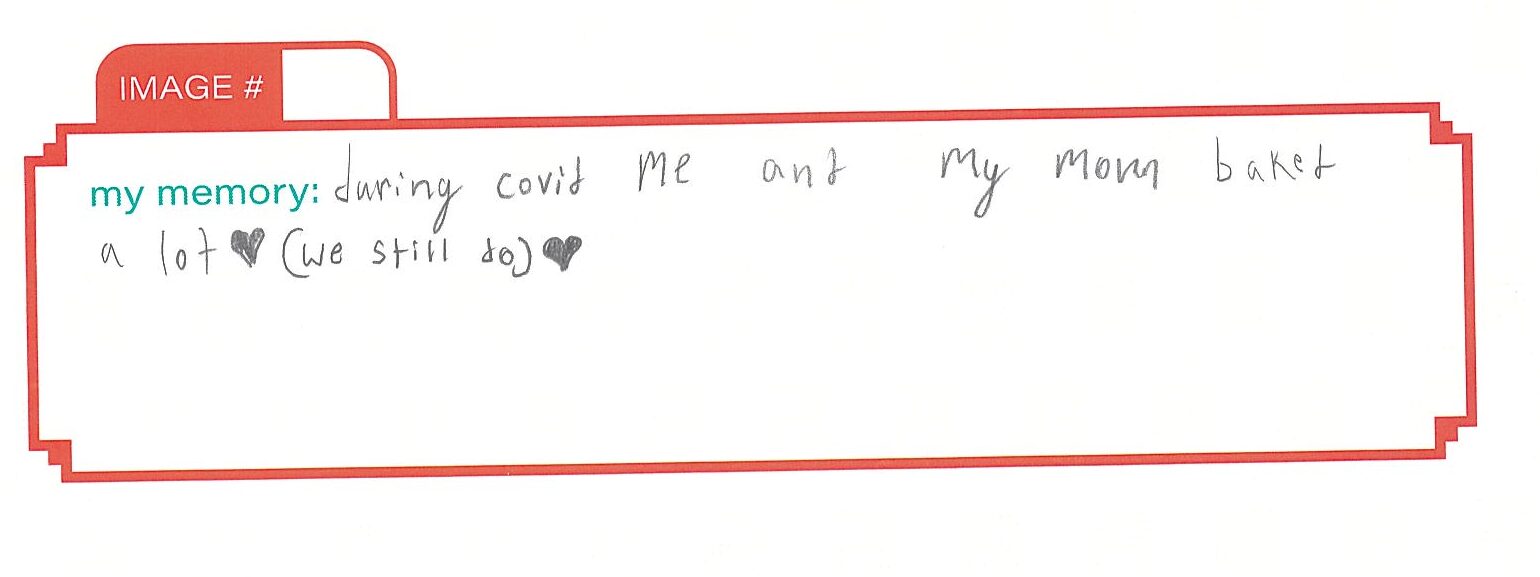 IMAGE #
my memory: during covid me and my mom baked
a lot♥ (we still do)♥